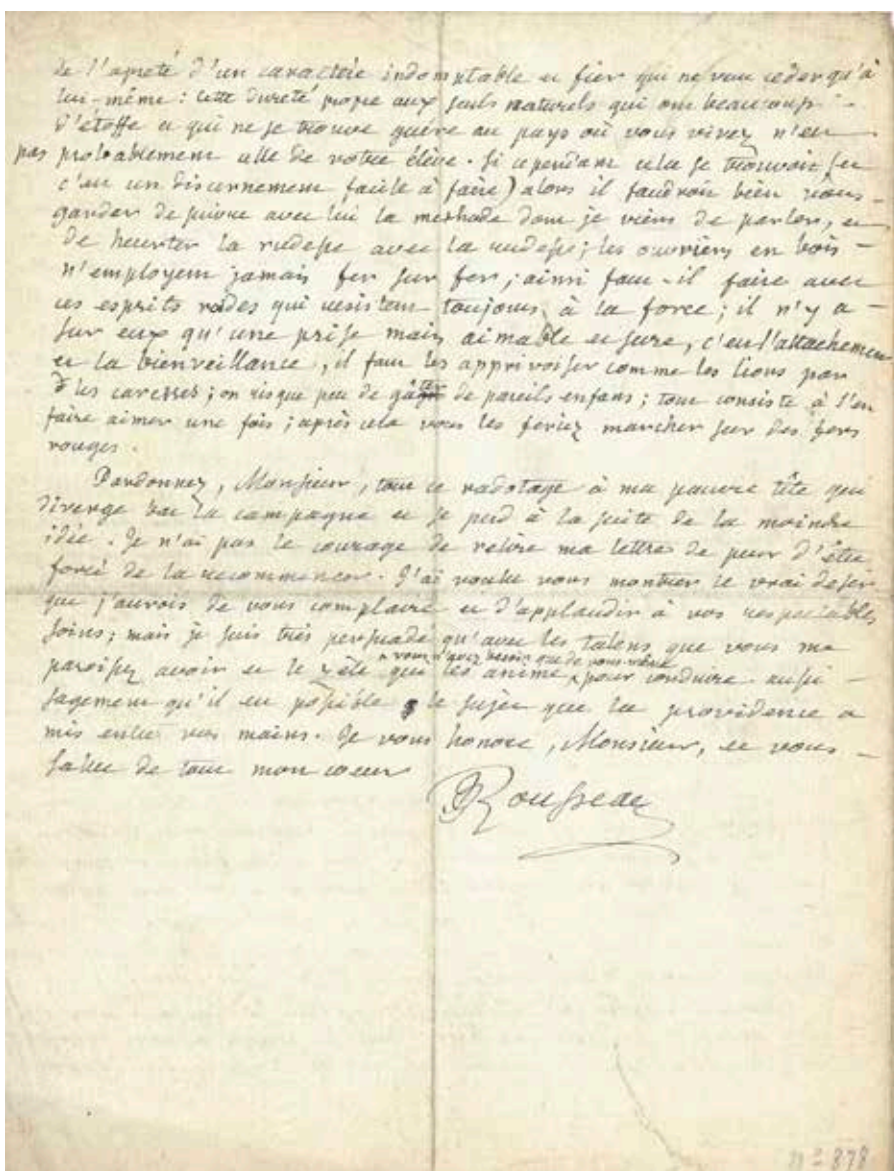 de l'apreté d'un caractére indomptable et fier qui ne veut ceder qu'à
lui-même : cette dureté propre aux seuls naturels qui ont beaucoup -
d'étoffe et qui ne se trouve guére au pays où vous vivez n'est
pas probablement celle de votre élève. Si cependant cela se trouvoit (et
c'est un discernement facile à faire) alors il faudroit bien vous -
garder de suivre avec lui la methode dont je viens de parler, et
de heurter la rudesse avec la rudesse; les ouvriers en bois -
n'employent jamais fer sur fer; ainsi faut-il faire avec
ces esprits roides qui resistent toujours à la force; il n'y a -
sur eux qu'une prise mais aimable et sure, c'est l'attachement
et la bienveillance, il faut les apprivoiser comme les lions par
les caresses; on risque peu de gâter de pareils enfans; tout consiste à s'en
faire aimer une fois; après cela vous les feriez marcher sur des fers
rouges.
Pardonnez, Monsieur, tout ce radotage à ma pauvre tête qui
diverge bat la campagne et se perd à la suite de la moindre
idée. Je n'ai pas le courage de relire ma lettre de peur d'être
forcé de la recommencer. J'ai voulu vous montrer le vrai desir
que j'aurois de vous complaire et d'applaudir à vos respectables
soins; mais je suis très persuadé qu'avec les talens que vous me
vous n'avez besoin que de vous-même
paroissez avoir et le zéle qui les anime pour conduire aussi -
sagement qu'il est possible le sujet que la providence a
mis entre vos mains. Je vous honore, Monsieur, et vous -
salue de tout mon coeur
JJRousseau
n° 878